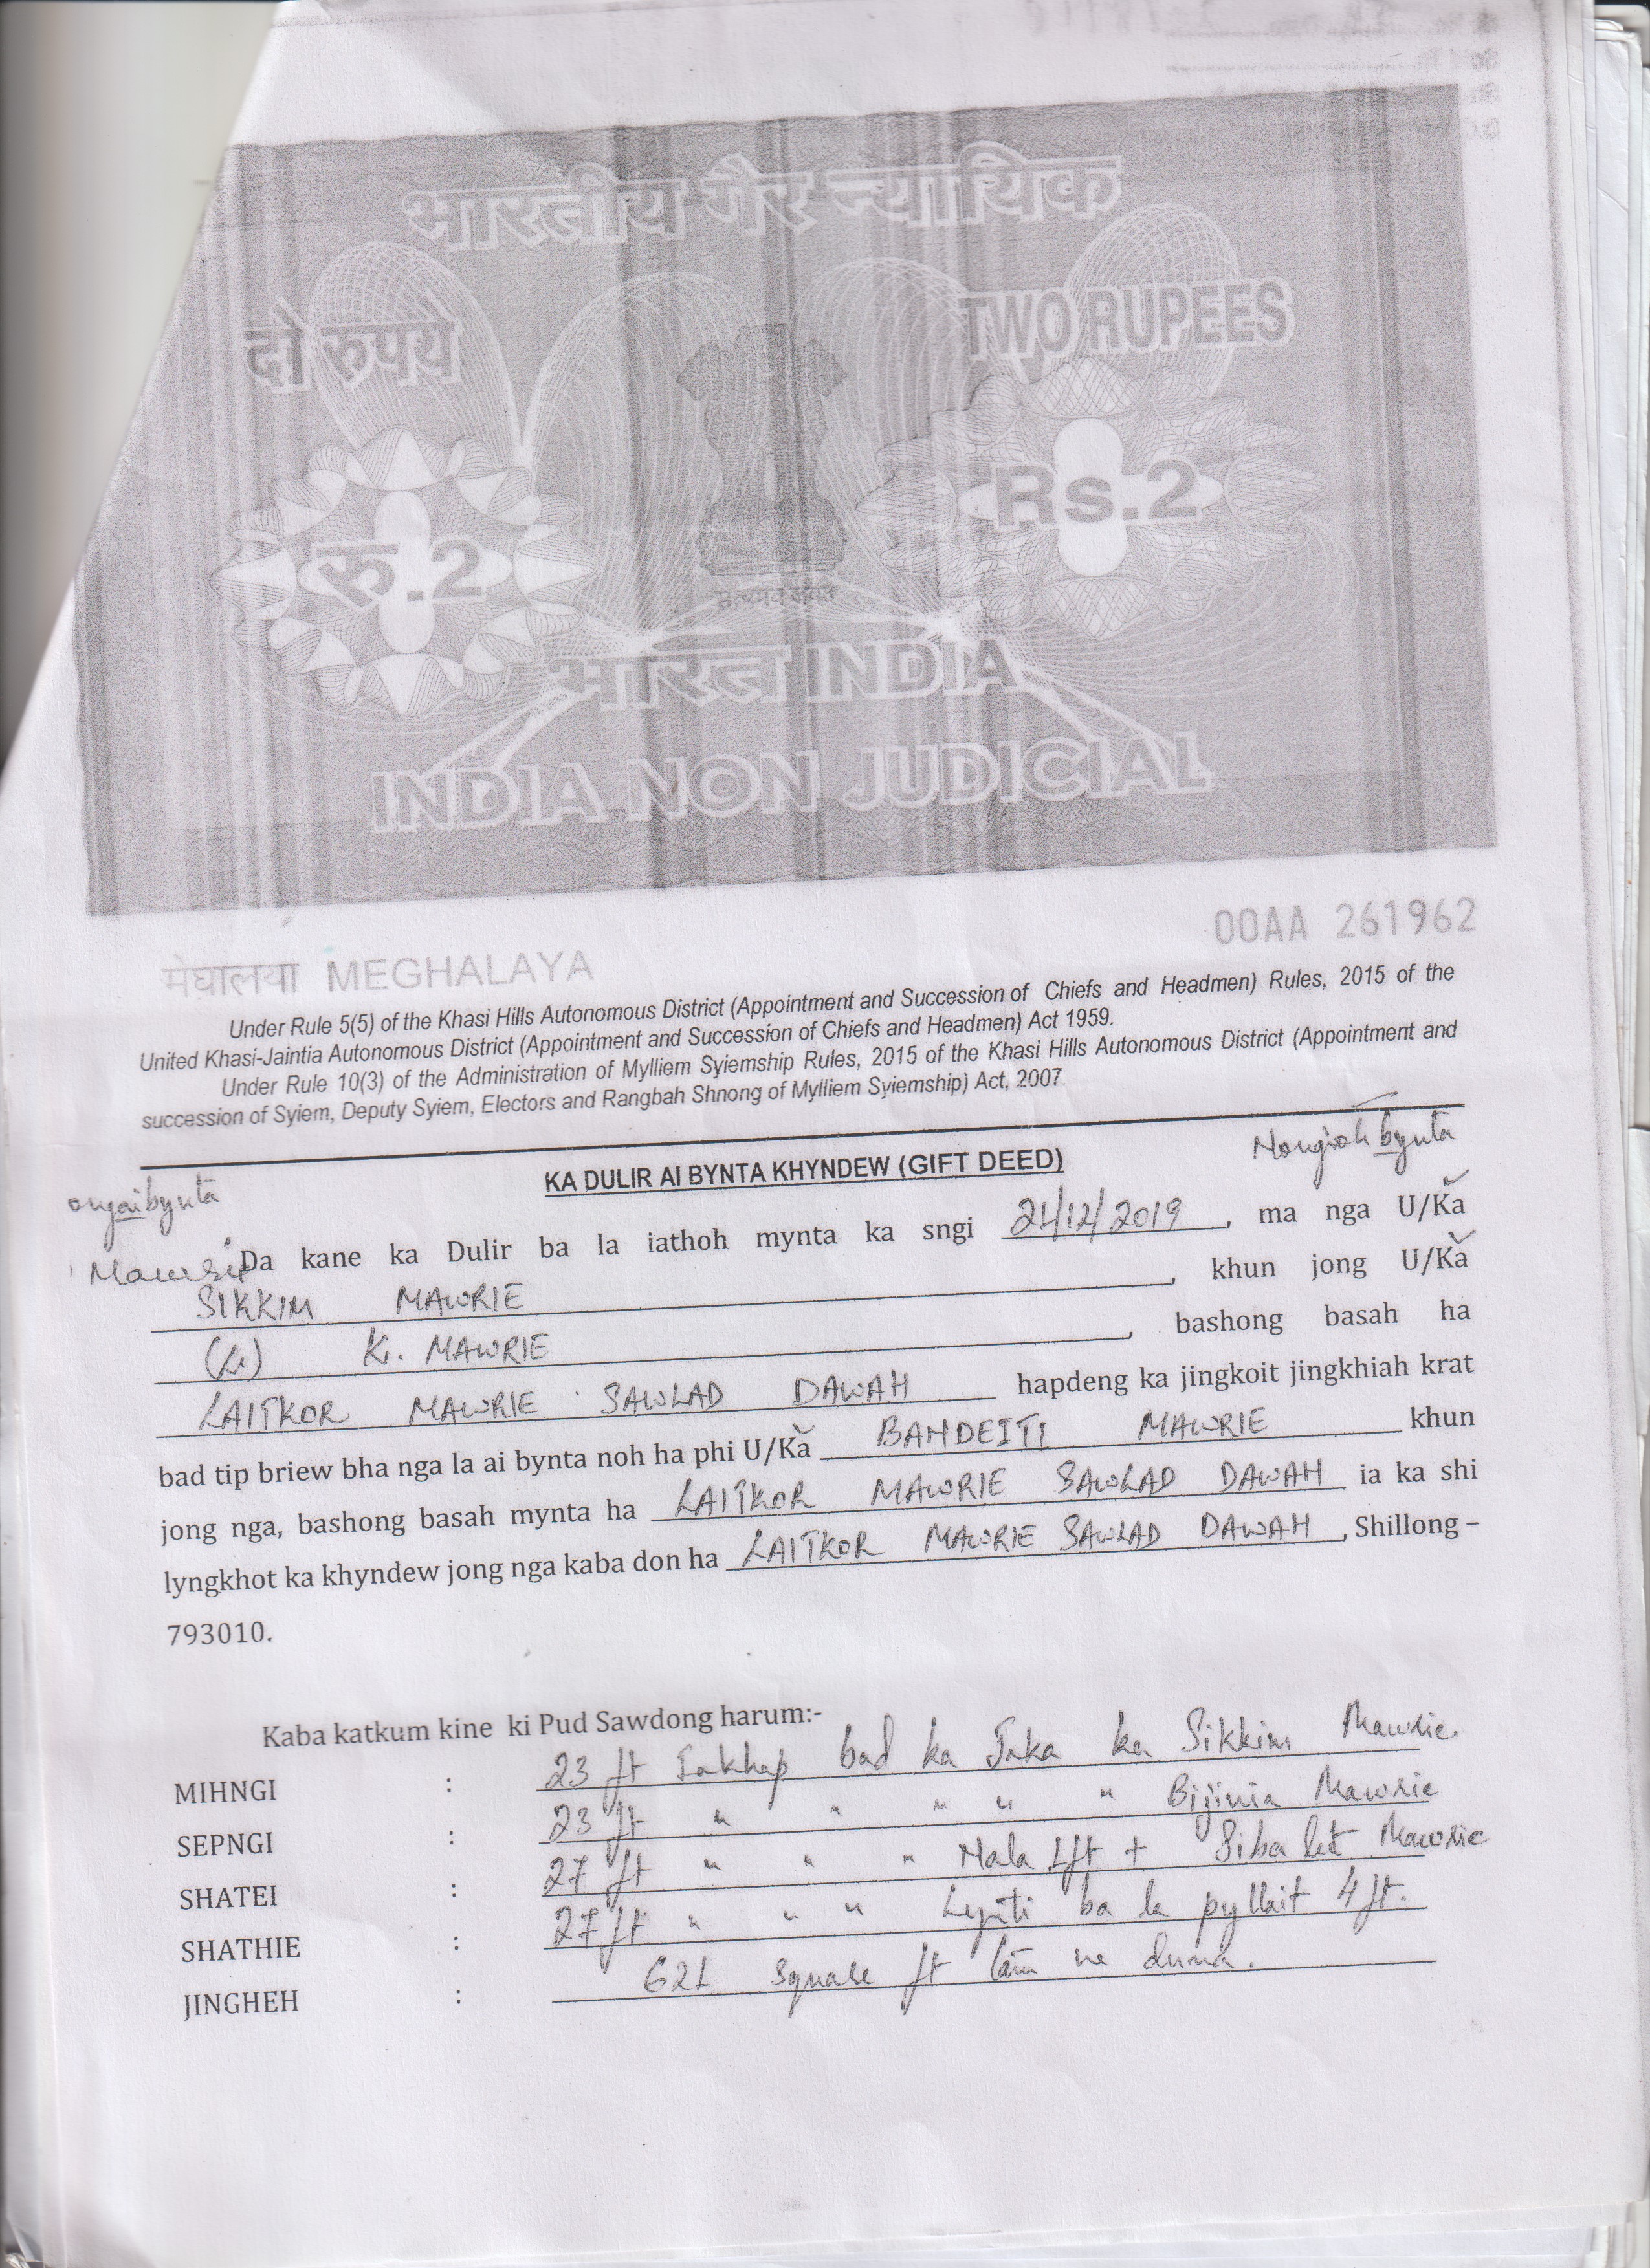 भारतीय गैर न्यायिक
दो रुपये TWO RUPEES
रु.2 Rs.2
सत्यमेव जयते
भारत INDIA
INDIA NON JUDICIAL
00AA 261962
मेघालया MEGHALAYA
Under Rule 5(5) of the Khasi Hills Autonomous District (Appointment and Succession of Chiefs and Headmen) Rules, 2015 of the
United Khasi-Jaintia Autonomous District (Appointment and Succession of Chiefs and Headmen) Act 1959.
Under Rule 10(3) of the Administration of Mylliem Syiemship Rules, 2015 of the Khasi Hills Autonomous District (Appointment and
succession of Syiem, Deputy Syiem, Electors and Rangbah Shnong of Mylliem Syiemship) Act, 2007
KA DULIR AI BYNTA KHYNDEW (GIFT DEED)
bynta
ongai bynta
Da kane ka Dulir ba la iathoh mynta ka sngi 21/12/2019, ma nga U/Ka
SIKKIM MAWRIE, khun jong U/Ka
(L) K. MAWRIE, bashong basah ha
LAITKOR MAWRIE SAWLAD DAWAH hapdeng ka jingkoit jingkhiah krat
bad tip briew bha nga la ai bynta noh ha phi U/Ka BANDEITI MAWRIE khun
jong nga, bashong basah mynta ha LAITKOR MAWRIE SAWLAD DAWAH ia ka shi
lyngkhot ka khyndew jong nga kaba don ha LAITKOR MAWRIE SAWLAD DAWAH, Shillong –
793010.
Kaba katkum kine ki Pud Sawdong harum:-
MIHNGI : 23 ft Iakhap bad ka Jaka ka Sikkim Mawrie.
SEPNGI : 23 ft " " " " " Bijinia Mawrie
SHATEI : 27 ft " " " Nala 1ft + Siba let Mawrie
SHATHIE : 27 ft " " " Lynti ba la pyllait 4 ft.
JINGHEH : 621 square ft tam ne duna.